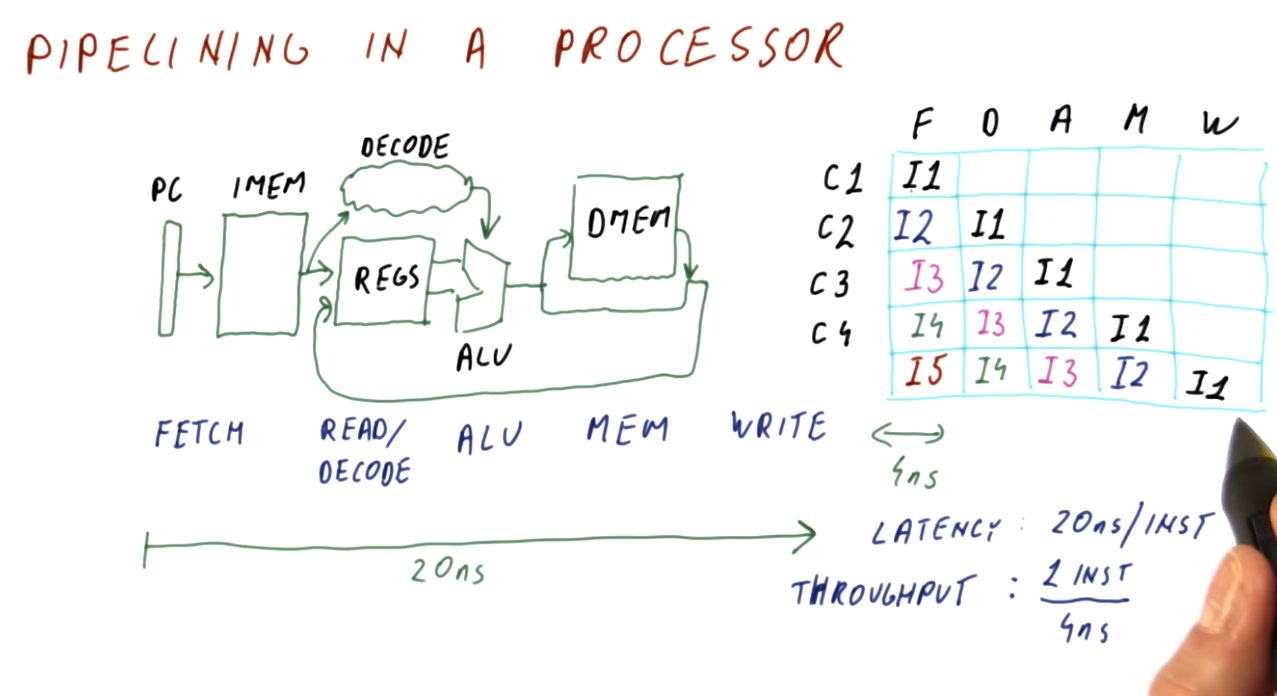 PIPELINING IN A PROCESSOR
DECODE
PC IMEM
REGS
DMEM
ALU
FETCH READ/ ALU MEM WRITE
DECODE
20ns
F D A M W
C1 I1
C2 I2 I1
C3 I3 I2 I1
C4 I4 I3 I2 I1
I5 I4 I3 I2 I1
4ns
LATENCY : 20ns/INST
THROUGHPUT : 1 INST
4ns